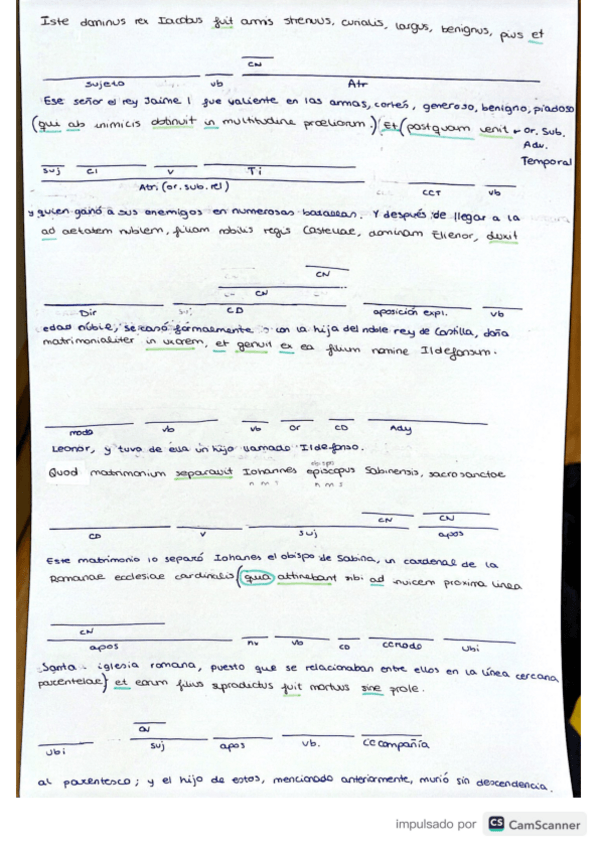 Iste dominus rex Iacobus fuit armis strenuus, curialis, largus, benignus, pius et
CN
Sujeto vb Atr
Ese señor el rey Jaime I fue valiente en las armas, cortés, generoso, benigno, piadoso
(qui ab inimicis obtinuit in multitudine proeliorum.) Et (postquam venit → or. Sub.
Adv.
Temporal
Suj Cl V Ti
Atr (or. sub. rel) CCT vb
y quien ganó a sus enemigos en numerosas batallas. Y después de llegar a la
ad aetatem nubilem, filiam nobilis regis Castellae, dominam Elienor, duxit
CN
CN
Dir CD aposición expl. vb
edad núbil, se casó formalmente con la hija del noble rey de Castilla, doña
matrimonialiter in uxorem, et genuit ex ea filium nomine Ildefonsum.
modo vb vb or CD Ady
Leonor, y tuvo de ella un hijo llamado Ildefonso.
Quod matrimonium separavit Iohannes episcopus Sabinensis, sacrosanctae
CN CN
CD V Suj apos
Este matrimonio lo separó Iohanes el obispo de Sabina, un cardenal de la
Romanae ecclesiae cardinalis (quia attinebant sibi ad invicem proxima linea
CN
apos nx vb CD CCmodo Ubi
Santa iglesia romana, puesto que se relacionaban entre ellos en la línea cercana
parentelae) et eorum filius supradictus fuit mortuus sine prole.
CN
Ubi Suj apos vb. CC compañía
al parentesco; y el hijo de estos, mencionado anteriormente, murió sin descendencia.
impulsado por CS CamScanner